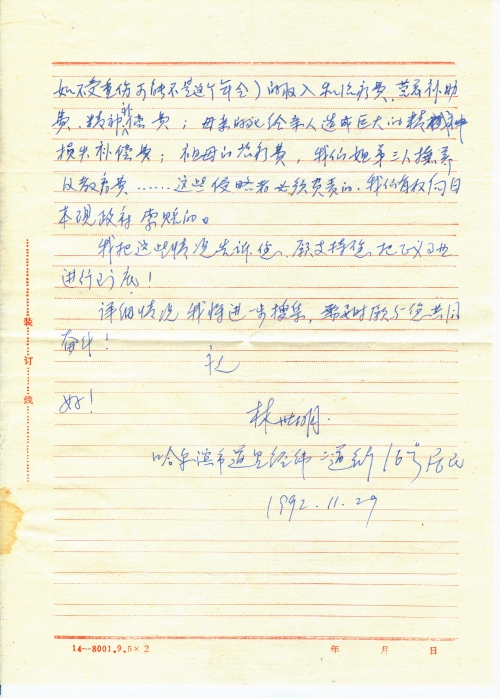 如不受重伤可能不是这个年令）的收入和治疗费、营养补助
费、精神补偿费；母亲的死给亲人造成巨大的精神
损失补偿费；祖母的治疗费，我们姐弟三人抚养
及教育费……这些侵略者必须负责的。我们有权向日
本现政府索赔的。
我把这些情况告诉您、愿支持您把正义事业
进行到底！
详细情况我将进一步搜集，需要时愿与您共同
奋斗！
礼
好！
林世明.
哈尔滨市道里经纬二道街16号居民
1992.11.29
装订线
14—8001.9.5×2 年 月 日